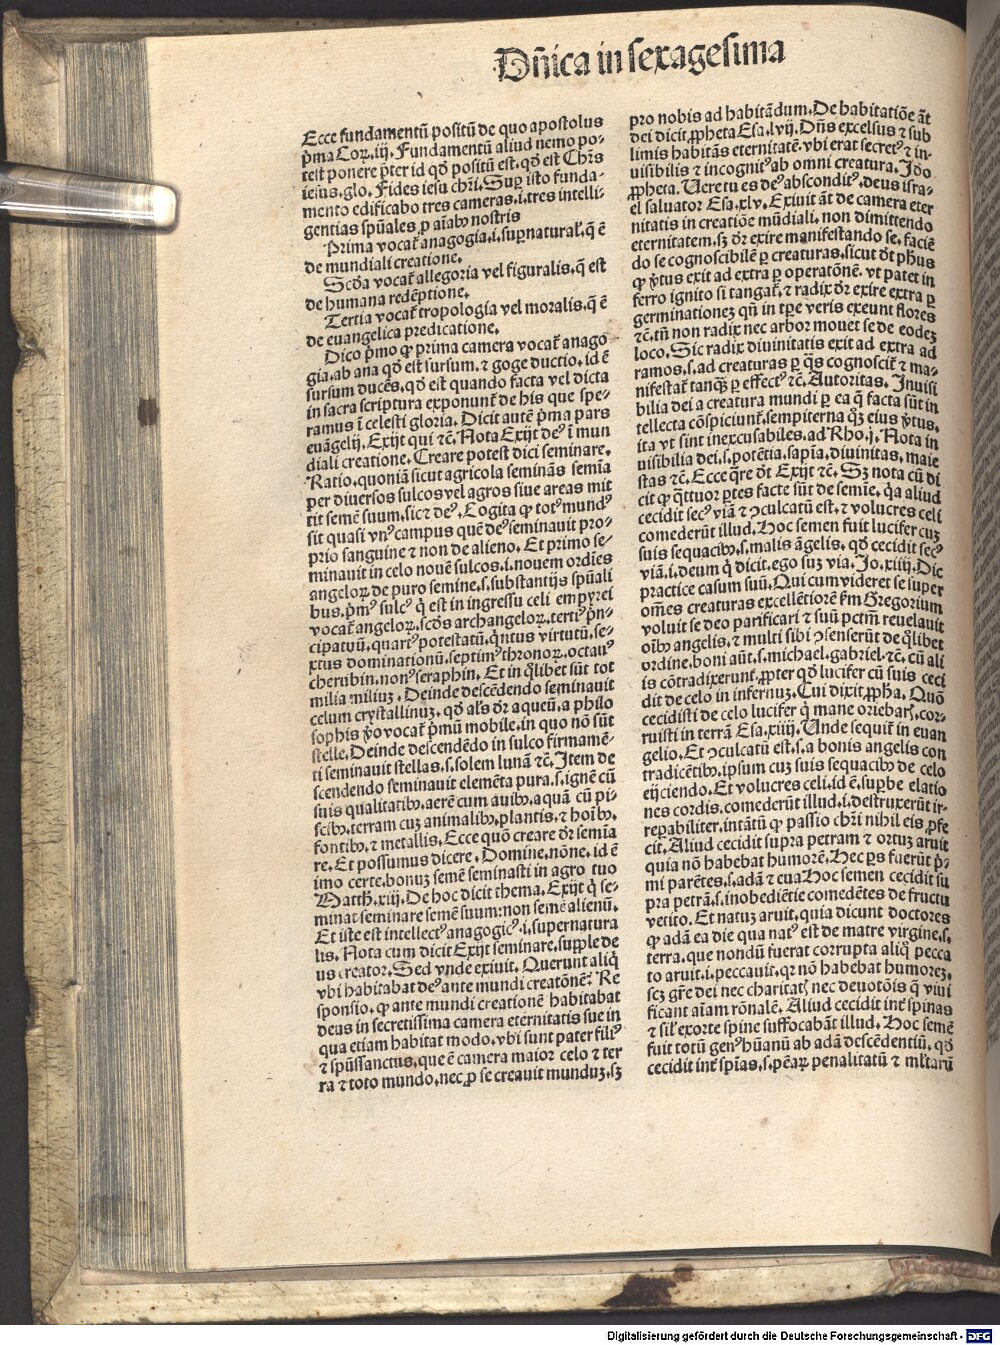 Dñica in sexagesima
Ecce fundamentũ positũ de quo apostolus
p̃ma Coꝝ.iij. Fundamentũ aliud nemo po-
test ponere p̃ter id qđ positũ est.qđ est Chr̃s
iesus.glo. Fides iesu chr̃i. Suꝑ isto funda-
mento edificabo tres cameras.i.tres intelli-
gentias spũales ꝓ aĩabꝰ nostris
Prima vocat᷑ anagogia.i.suꝑnatural᷑.q̃ ẽ
de mundiali creatione.
Scđa vocat᷑ allegoria vel figuralis.q̃ est
de humana redẽptione.
Tertia vocat᷑ tropologia vel moralis.q̃ ẽ
de euangelica predicatione.
Dico p̃mo ꝙ prima camera vocat᷑ anago
gia.ab ana qđ est sursum.⁊ goge ductio.id ẽ
sursum ducẽs.qđ est quando facta vel dicta
in sacra scriptura exponunt᷑ de his que spe-
ramus ĩ celesti gloria. Dicit autẽ p̃ma pars
euãgelij. Exijt qui ⁊c̃. Nota Exijt deꝰ ĩ mun
diali creatione. Creare potest dici seminare.
Ratio.quoniã sicut agricola seminãs semĩa
per diuersos sulcos vel agros siue areas mit
tit semẽ suum.sic ⁊ deꝰ. Cogita ꝙ totꝰ mundꝰ
sit quasi vnꝰ campus quẽ deꝰ seminauit pro-
prio sanguine ⁊ non de alieno. Et primo se-
minauit in celo nouẽ sulcos.i.nouem ordĩes
angeloꝝ de puro semine.s.substantijs spũali
bus.p̃mꝰ sulcꝰ q̇ est in ingressu celi empyrei
vocat᷑ angeloꝝ.scđs archangeloꝝ.tertiꝰ p̃n-
cipatuũ.quartꝰ potestatũ.q̇ntus virtutũ.se-
xtus dominationũ.septimꝰ thronoꝝ.octauꝰ
cherubin.nonꝰ seraphin. Et in q̃libet sũt tot
milia miliuꝫ. Deinde descẽdendo seminauit
celum crystallinuꝫ.qđ al̃s dr̃ aqueũ.a philo
sophis ṽo vocat᷑ p̃mũ mobile.in quo nõ sũt
stelle. Deinde descendẽdo in sulco firmamẽ-
ti seminauit stellas.s.solem lunã ⁊c̃. Item de
scendendo seminauit elemẽta pura.s.ignẽ cũ
suis qualitatibꝰ.aerẽ cum auibꝰ.aquã cũ pi-
scibꝰ.terram cuꝫ animalibꝰ.plantis.⁊ hoĩbꝰ.
fontibꝰ.⁊ metallis. Ecce quõ creare dr̃ semĩa
re. Et possumus dicere. Domine.nõne.id ẽ
imo certe.bonuꝫ semẽ seminasti in agro tuo
Matth̃.xiij. De hoc dicit thema. Exijt q̇ se-
minat seminare semẽ suum:non semẽ alienũ.
Et iste est intellectꝰ anagogicꝰ.i.supernatura
lis. Nota cum dicit Exijt seminare.supple de
us creator. Sed vnde exiuit. Querunt aliq̇
vbi habitabat deꝰ ante mundi creatõnẽ? Re
sponsio.ꝙ ante mundi creationẽ habitabat
deus in secretissima camera eternitatis sue in
qua etiam habitat modo.vbi sunt pater filiꝰ
⁊ spũssanctus.que ẽ camera maior celo ⁊ ter
ra ⁊ toto mundo.nec ꝓ se creauit munduꝫ.sꝫ
pro nobis ad habitãdum. De habitatiõe aũt
dei dicit ꝓpheta Esa.lvij. Dñs excelsus ⁊ sub
limis habitãs eternitatẽ.vbi erat secretꝰ ⁊ in-
uisibilis ⁊ incognitꝰ ab omni creatura. Iđo
ꝓpheta. Uere tu es deꝰ absconditꝰ.deus isra-
el saluator Esa.xlv. Exiuit aũt de camera eter
nitatis in creatiõe mũdiali.non dimittendo
eternitatem.sꝫ dr̃ exire manifestando se.faciẽ
do se cognoscibilẽ ꝑ creaturas.sicut dt̃ ph̃us
ꝙ ṽtus exit ad extra ꝑ operatõnẽ.vt patet in
ferro ignito si tangat᷑.⁊ radix dr̃ exire extra ꝑ
germinationeꝫ qñ in tꝑe veris exeunt flores
⁊c̃.tñ non radix nec arbor mouet se de eodeꝫ
loco. Sic radix diuinitatis exit ad extra ad
ramos.s.ad creaturas ꝑ q̃s cognoscit᷑ ⁊ ma-
nifestat᷑ tanq̃ꝫ ꝑ effectꝰ ⁊c̃. Autoritas. Inuisi
bilia dei a creatura mundi ꝑ ea q̃ facta sũt in
tellecta cõspiciunt᷑.sempiterna q̃ꝫ eius ṽtus.
ita vt sint inexcusabiles.ad Rho.j. Nota in
uisibilia dei.s.potẽtia.sapĩa.diuinitas.maie
stas ⁊c̃. Ecce q̃re dt̃ Exijt ⁊c̃. Sꝫ nota cũ di
cit ꝙ q̃ttuor ꝑtes facte sũt de semĩe.q̇a aliud
cecidit secꝰ viã ⁊ ↄculcatũ est.⁊ volucres celi
comederũt illud. Hoc semen fuit lucifer cuꝫ
suis sequacibꝰ.s.malis ãgelis.qđ cecidit secꝰ
viã.i.deum q̇ dicit.ego suꝫ via. Jo.xiiij. Dic
practice casum suũ. Qui cum videret se super
oẽs creaturas excellẽtiorẽ fm̃ Gregorium
voluit se deo parificari ⁊ suũ pctm̃ reuelauit
oĩbꝰ angelis.⁊ multi sibi ↄsenserũt de q̃libet
ordine.boni aũt.s.michael.gabriel.⁊c̃.cũ ali
is cõtradixerunt.ꝓpter qđ lucifer cũ suis ceci
dit de celo in infernuꝫ. Cui dixit ꝓpha. Quõ
cecidisti de celo lucifer q̇ mane oriebar᷑.cor-
ruisti in terrã Esa.xiiij. Unde sequit᷑ in euan
gelio. Et ↄculcatũ est.s.a bonis angelis con
tradicẽtibꝰ.ipsum cuꝫ suis sequacibꝰ de celo
eijciendo. Et volucres celi.id ẽ.suꝑbe elatio
nes cordis.comederũt illud.i.destruxerũt ir-
reꝑabiliter.intãtũ ꝙ passio chr̃i nihil eis ꝓfe
cit. Aliud cecidit supra petram ⁊ ortuꝫ aruit
quia nõ habebat humorẽ. Hec ꝑs fuerũt p̃-
mi parẽtes.s.adã ⁊ eua Hoc semen cecidit su
pra petrã.s.inobediẽtie comedẽtes de fructu
vetito. Et natuꝫ aruit.quia dicunt doctores
ꝙ adã ea die qua natꝰ est de matre virgine.s.
terra.que nondũ fuerat corrupta aliq̇ pecca
to aruit.i.peccauit.qꝛ nõ habebat humoreꝫ.
scꝫ gr̃e dei nec charitat᷑ nec deuotõis q̃ viui
ficant aĩam rõnalẽ. Aliud cecidit int᷑ spinas
⁊ sil᷑ exorte spine suffocabãt illud. Hoc semẽ
fuit totũ genꝰ hũanũ ab adã descẽdentiũ.qđ
cecidit int᷑ spĩas.s.pẽaꝝ penalitatũ ⁊ ml̃tarũ
Digitalisierung gefördert durch die Deutsche Forschungsgemeinschaft - DFG